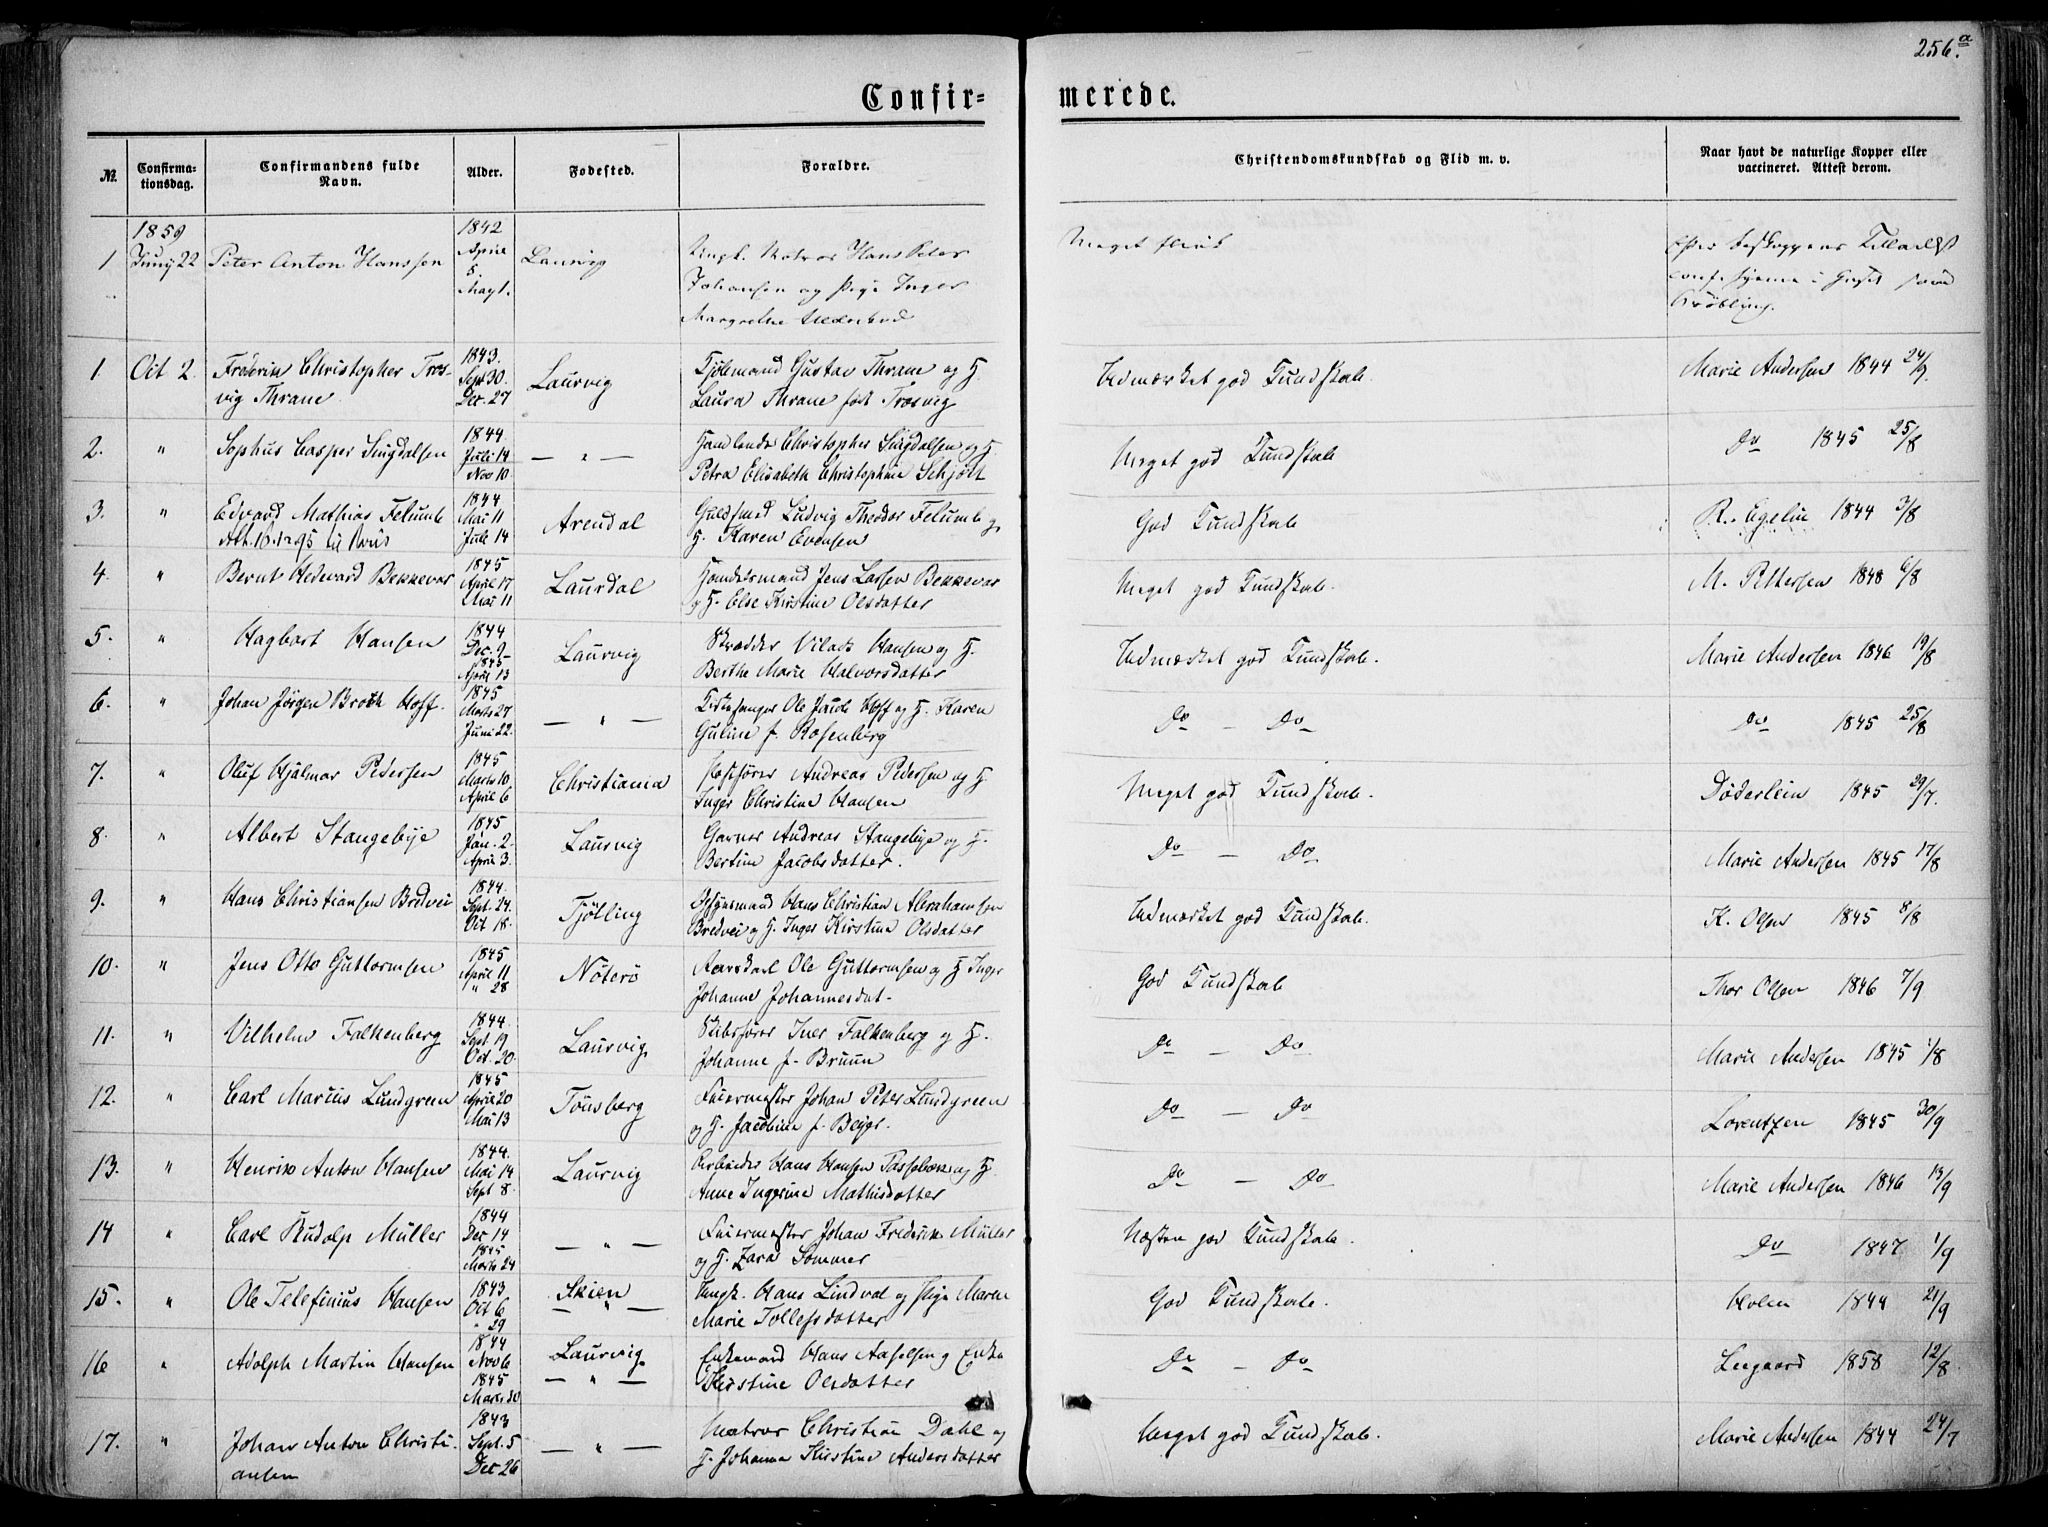 256.a
Confirmerede.
No. Confirmationsdag. Confirmandens fulde Navn. Alder. Fødested. Forældre. Christendomskundskab og Flid m. v. Naar havt de naturlige Kopper eller vaccineret. Attest derom.
1859 1842
1 Juny 22 Peter Anton Hanssen April 5. May 1. Laurvig Ungk. Matros Hans Peter Meget
Johansen og Pige Inger
Margrethe
1. Oct 2. Frederik Christopher Tros- 1843. Sept 30. Laurvig Gustav Thrane og H. Udmærket god Kundskab. Marie Andersen 1844 24/9.
vig Thrane Dec. 27 Laura Thrane født Trosvig
2. " Sophus Casper Smgdalsen 1844. Juli 14 — " — Christopher Smgdalsen og H. Meget god Kundskab Do 1845 25/8
Nov 10. Petra Elisabeth Christophine Schjøtt
3. " Edvard Mathias Felumb 1844 Mai 11 Arendal Guldsmed Ludvig Theodor Felumb og God Kundskab R. Egelie 1844 3/8
Att. 16. 1-95 til Juli 14 H. Karen Evensen
4. " Bernt Hedevard Bekkevar 1845 April 17 Laurdal Jens Larsen Bekkevar Meget god Kundskab. M. Pettersen 1848 6/8
Mai 11 og H. Else Kirstine Olsdatter
5. " Hagbart Hansen 1844 Dec. 9 Laurvig Skrædder Vilads Hansen og H. Udmærket god Kundskab. Marie Andersen 1846 19/8
1845 April 13 Berthe Marie Halvorsdatter
6. " Johan Jørgen Broch Hoff. 1845 Marts 27 — " — Ole Jacob Hoff og H. Karen Do — Do Do 1845 25/8
Juni 22. Guline f. Rosenberg
7. " Oluf Hjalmar Pedersen 1845 Marts 10 Christiania Andreas Pedersen og H. Meget god Kundskab. Døderlein 1845 29/7.
April 6 Inger Christine Hansen
8. " Albert Stangebye 1845 Jan. 2. Laurvig Garver Andreas Stangebye og H. Do — Do Marie Andersen 1845 17/8
April 3. Bertine Jacobsdatter.
9. " Hans Christiansen Bredvei 1844. Sept. 24. Tjølling Hans Christian Abrahamsen Udmærket god Kundskab. K. Olsen 1845 8/8
Oct 18. Bredvei og H. Inger Kirstine Olsdatter
10. " Jens Otto Guttormsen 1845 April 11 Nøterø Ole Guttormsen og H Inger God Kundskab Thor Olsen 1846 7/9
" 28 Johanne Johannesdat.
11. " Vilhelm Falkenberg 1844. Sept 19 Laurvig. Skibsfører Iver Falkenberg og H. Do — Do Marie Andersen 1845 1/8
Oct. 20. Johanne f. Bruun
12. " Carl Marius Lundgreen 1845 April 20 Tønsberg Johan Peter Lundgreen Do — Do Lorentzen 1845 30/9
Mai 13 og H. Jacobine f. Beyer.
13. " Henrik Anton Hansen 1844. Mai 14 Laurvig Arbeider Hans Hansen Tassebek og H. Do — Do Marie Andersen 1846 13/9
Sept 8. Anne Ingerine Mathisdatter
14 " Carl Rudolp Müller 1844 Dec 14 — " — Johan Frederik Müller Næsten god Kundskab. Do 1847 1/9
1845 Marts 24 og H. Zara Sommer
15. " Ole Telefinius Hansen 1843 Oct 6 Skien Ungk. Hans Lindval og Pige Maren God Kundskab. Holen 1844 21/9
" 29 — " — Marie Tollefsdatter
16 " Adolph Martin Hansen 1844 Nov 6 Laurvig. Enkemand Hans Axelsen og Enke Do — Do Leegaard 1858 12/8
1845 — " — Kirstine Olsdatter
17. " Johan Anton Christi- 1843 Sept. 5 — " — Matros Christian Dahl og Meget god Kundskab. Marie Andersen 1844 24/7
ansen Dec 26 H. Johanne Kirstine Andersdatter